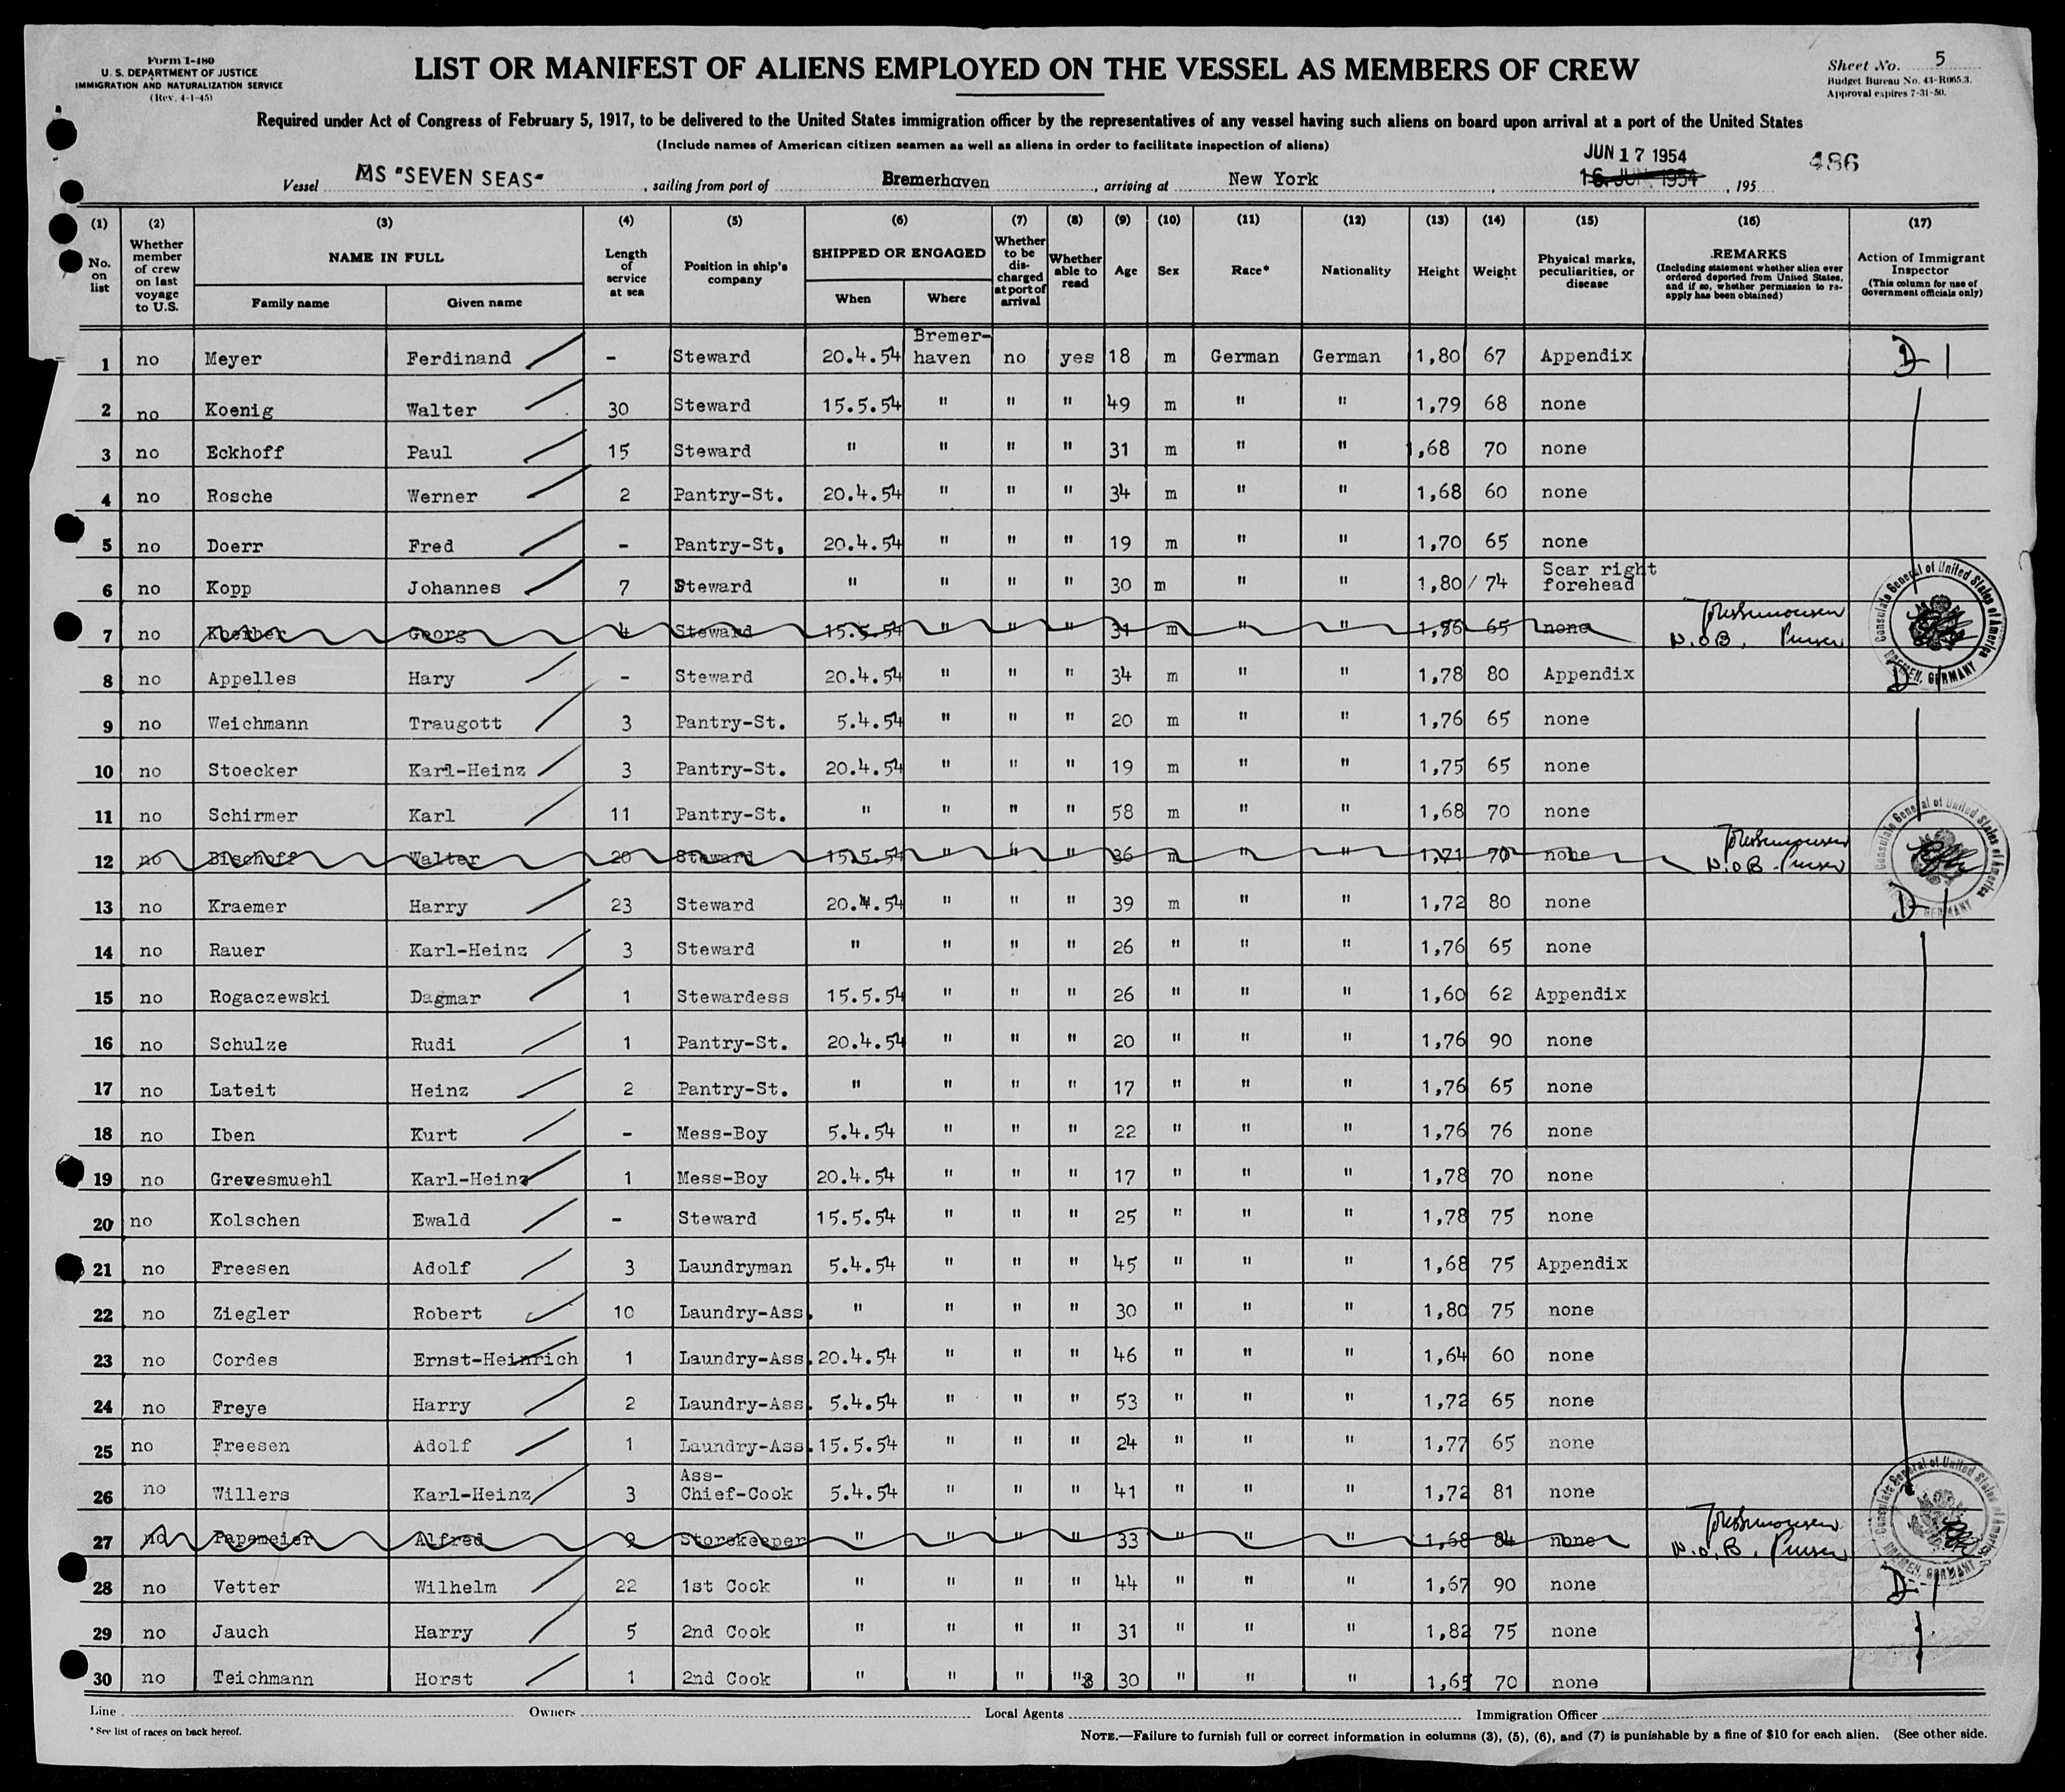 Form I-480
U. S. DEPARTMENT OF JUSTICE
IMMIGRATION AND NATURALIZATION SERVICE
(Rev. 4-1-45)
LIST OR MANIFEST OF ALIENS EMPLOYED ON THE VESSEL AS MEMBERS OF CREW
Sheet No. 5
Budget Bureau No. 43-R065.3.
Approval expires 7-31-50.
Required under Act of Congress of February 5, 1917, to be delivered to the United States immigration officer by the representatives of any vessel having such aliens on board upon arrival at a port of the United States
(Include names of American citizen seamen as well as aliens in order to facilitate inspection of aliens)
JUN 17 1954
486
Vessel MS "SEVEN SEAS" , sailing from port of Bremerhaven , arriving at New York , 16. JUN. 1954 , 195
(1) (2) (3) (4) (5) (6) (7) (8) (9) (10) (11) (12) (13) (14) (15) (16) (17)
No. on list
Whether member of crew on last voyage to U.S.
NAME IN FULL
Family name
Given name
Length of service at sea
Position in ship's company
SHIPPED OR ENGAGED
When
Where
Whether to be discharged at port of arrival
Whether able to read
Age
Sex
Race*
Nationality
Height
Weight
Physical marks, peculiarities, or disease
REMARKS
(Including statement whether alien ever ordered deported from United States, and if so, whether permission to reapply has been obtained)
Action of Immigrant Inspector
(This column for use of Government officials only)
1 no Meyer Ferdinand - Steward 20.4.54 Bremerhaven no yes 18 m German German 1,80 67 Appendix D-1
2 no Koenig Walter 30 Steward 15.5.54 " " " 49 m " " 1,79 68 none
3 no Eckhoff Paul 15 Steward " " " " 31 m " " 1,68 70 none
4 no Rosche Werner 2 Pantry-St. 20.4.54 " " " 34 m " " 1,68 60 none
5 no Doerr Fred - Pantry-St. 20.4.54 " " " 19 m " " 1,70 65 none
6 no Kopp Johannes 7 Steward " " " " 30 m " " 1,80 / 74 Scar right forehead
7 no Georg 4 Steward 15.5.54 " " " 31 m " " 1,76 65 none N.O.B. Purser
8 no Appelles Hary - Steward 20.4.54 " " " 34 m " " 1,78 80 Appendix D-1
9 no Weichmann Traugott 3 Pantry-St. 5.4.54 " " " 20 m " " 1,76 65 none
10 no Stoecker Karl-Heinz 3 Pantry-St. 20.4.54 " " " 19 m " " 1,75 65 none
11 no Schirmer Karl 11 Pantry-St. " " " " 58 m " " 1,68 70 none
12 no Bischoff Walter 20 Steward 15.5.54 " " " 36 m " " 1,71 70 none N.O.B. Purser
13 no Kraemer Harry 23 Steward 20.4.54 " " " 39 m " " 1,72 80 none D-1
14 no Rauer Karl-Heinz 3 Steward " " " " 26 " " " 1,76 65 none
15 no Rogaczewski Dagmar 1 Stewardess 15.5.54 " " " 26 " " " 1,60 62 Appendix
16 no Schulze Rudi 1 Pantry-St. 20.4.54 " " " 20 " " " 1,76 90 none
17 no Lateit Heinz 2 Pantry-St. " " " " 17 " " " 1,76 65 none
18 no Iben Kurt - Mess-Boy 5.4.54 " " " 22 " " " 1,76 76 none
19 no Grevesmuehl Karl-Heinz 1 Mess-Boy 20.4.54 " " " 17 " " " 1,78 70 none
20 no Kolschen Ewald - Steward 15.5.54 " " " 25 " " " 1,78 75 none
21 no Freesen Adolf 3 Laundryman 5.4.54 " " " 45 " " " 1,68 75 Appendix
22 no Ziegler Robert 10 Laundry-Ass. " " " " 30 " " " 1,80 75 none
23 no Cordes Ernst-Heinrich 1 Laundry-Ass. 20.4.54 " " " 46 " " " 1,64 60 none
24 no Freye Harry 2 Laundry-Ass. 5.4.54 " " " 53 " " " 1,72 65 none
25 no Freesen Adolf 1 Laundry-Ass. 15.5.54 " " " 24 " " " 1,77 65 none
26 no Willers Karl-Heinz 3 Ass-Chief-Cook 5.4.54 " " " 41 " " " 1,72 81 none
27 no Papemeier Alfred 9 Storekeeper " " " " 33 " " " 1,68 84 none N.O.B. Purser
28 no Vetter Wilhelm 22 1st Cook " " " " 44 " " " 1,67 90 none D-1
29 no Jauch Harry 5 2nd Cook " " " " 31 " " " 1,82 75 none
30 no Teichmann Horst 1 2nd Cook " " " " 30 " " " 1,65 70 none
Consulate General of United States of America
BREMEN, GERMANY
Consulate General of United States of America
GERMANY
Consulate General of United States of America
BREMEN, GERMANY
Line Owners Local Agents Immigration Officer
* See list of races on back hereof.
NOTE.—Failure to furnish full or correct information in columns (3), (5), (6), and (7) is punishable by a fine of $10 for each alien. (See other side.